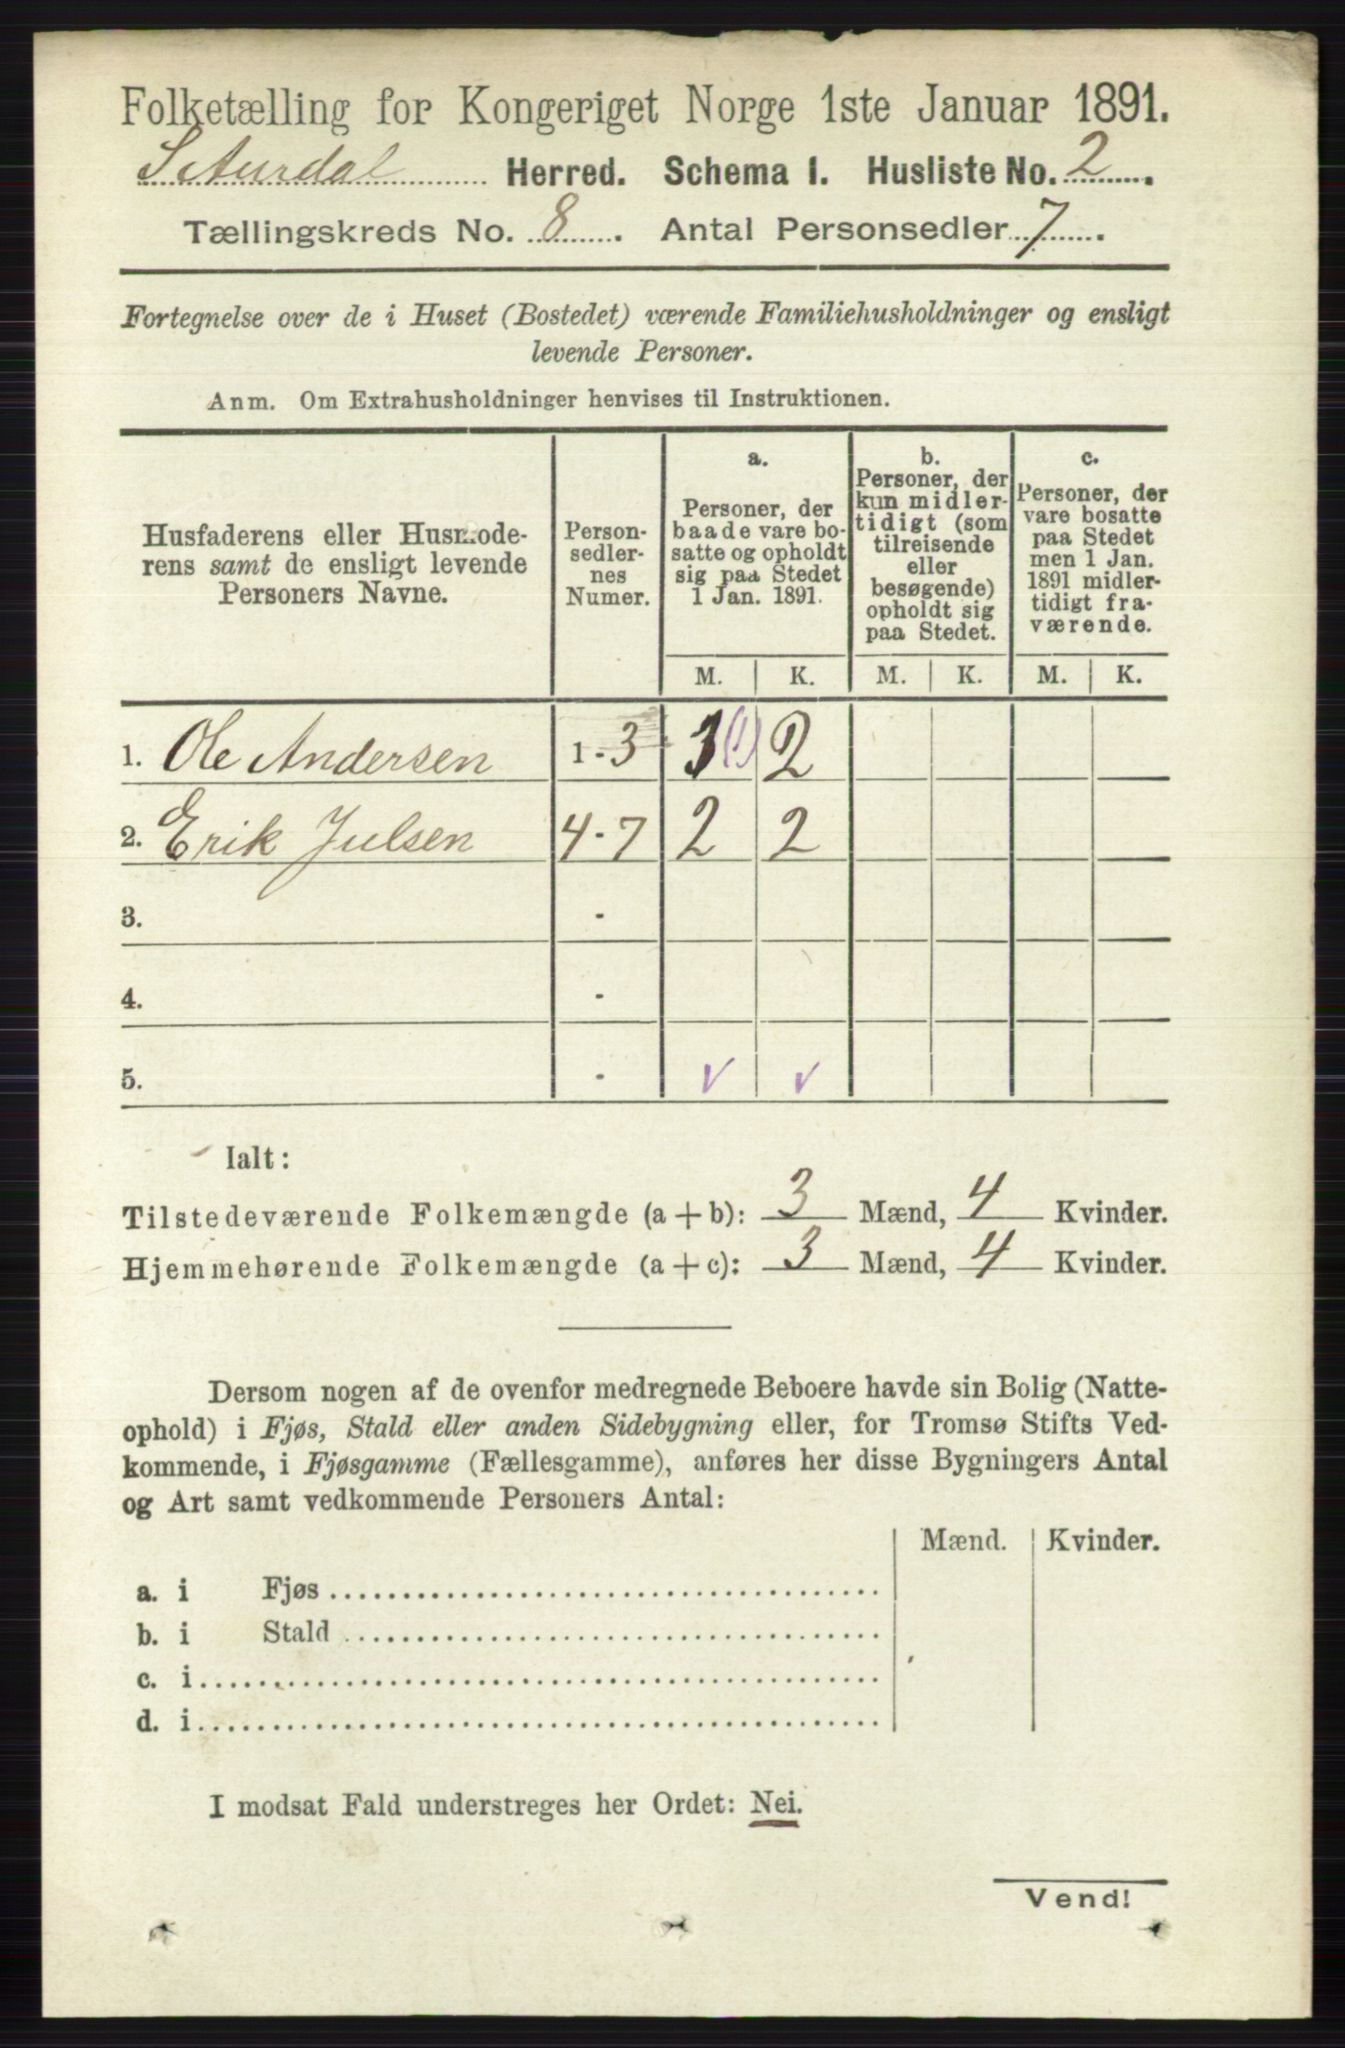 Folketælling for Kongeriget Norge 1ste Januar 1891.
S Aurdal Herred. Schema I. Husliste No. 2.
Tællingskreds No. 8. Antal Personsedler 7.
Fortegnelse over de i Huset (Bostedet) værende Familiehusholdninger og ensligt
levende Personer.
Anm. Om Extrahusholdninger henvises til Instruktionen.
Husfaderens eller Husmode-
rens samt de ensligt levende
Personers Navne.
Person-
sedler-
nes
Numer.
a.
Personer, der
baade vare bo-
satte og opholdt
sig paa Stedet
1 Jan. 1891.
b.
Personer, der
kun midler-
tidigt (som
tilreisende
eller
besøgende)
opholdt sig
paa Stedet.
c.
Personer, der
vare bosatte
paa Stedet
men 1 Jan.
1891 midler-
tidigt fra-
værende.
M. K. M. K. M. K.
1. Ole Andersen 1 - 3 (1) 2
2. Erik Julsen 4 - 7 2 2
3. -
4. -
5. - ✓ ✓
Ialt:
Tilstedeværende Folkemængde (a + b): 3 Mænd, 4 Kvinder.
Hjemmehørende Folkemængde (a + c): 3 Mænd, 4 Kvinder.
Dersom nogen af de ovenfor medregnede Beboere havde sin Bolig (Natte-
ophold) i Fjøs, Stald eller anden Sidebygning eller, for Tromsø Stifts Ved-
kommende, i Fjøsgamme (Fællesgamme), anføres her disse Bygningers Antal
og Art samt vedkommende Personers Antal:
Mænd. Kvinder.
a. i Fjøs
b. i Stald
c. i
d. i
I modsat Fald understreges her Ordet: Nei.
Vend!